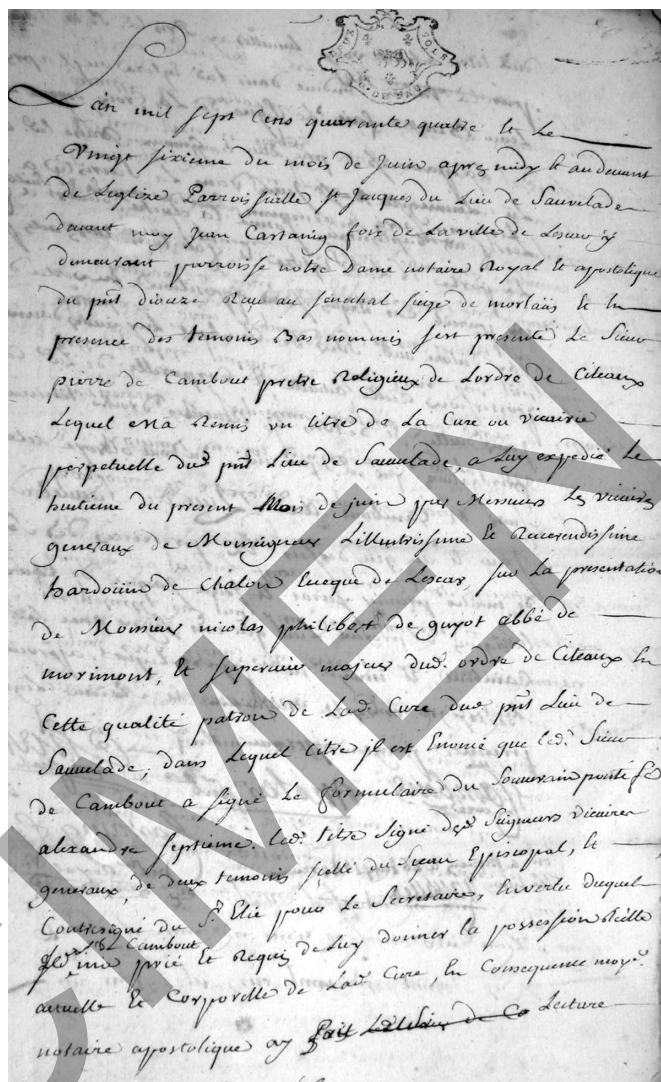 Lan mil sept Cens quarante quatre et Le
Vingt sixieme du mois de Juin apres midy et au devant
de Leglize Parroissielle St Jacques du Lieu de Sauvelade
devant moy Jean de La ville de Lescar y
demeurant parroisse notre Dame notaire Royal et apostolique
du pnt dioceze Reçu au senechal siege de morlaas et En
presence des temoins Bas nommés sest presenté Le Sieur
pierre de Cambout pretre Religieux de Lordre de Citeaux
Lequel Remis un titre de La Cure ou vicairie
perpetuelle dud pnt Lieu de Sauvelade, a Luy expedié Le
huitieme du present Mois de juin par Messieurs Les vicaires
generaux de Monseigneur Lillustrissime Et Reverendissime
hardouin de Chalon Eveque de Lescar, sur La presentation
de Monsieur nicolas philibert de guyot abbé de
morimont, Et superieur majeur dud. ordre de Citeaux En
Cette qualité patron de Lad. Cure dud pnt Lieu de
Sauvelade; dans Lequel titre jl est Enoncé que led. Sieur
de Cambout a signé Le formulaire du Souverain pontife
alexandre septieme. Led. titre signé Seigneurs vicaires
generaux, de deux temoins scellé du Sceau Episcopal, et
Contresigné du Sr Elie pour Le Secretaire, En vertu duquel
Cambout
prié Et Requis de Luy donner la possession Réelle
actuelle Et Corporelle de Lad. Cure En Consequence moyd.
notaire apostolique ay Lecture
SPECIMEN